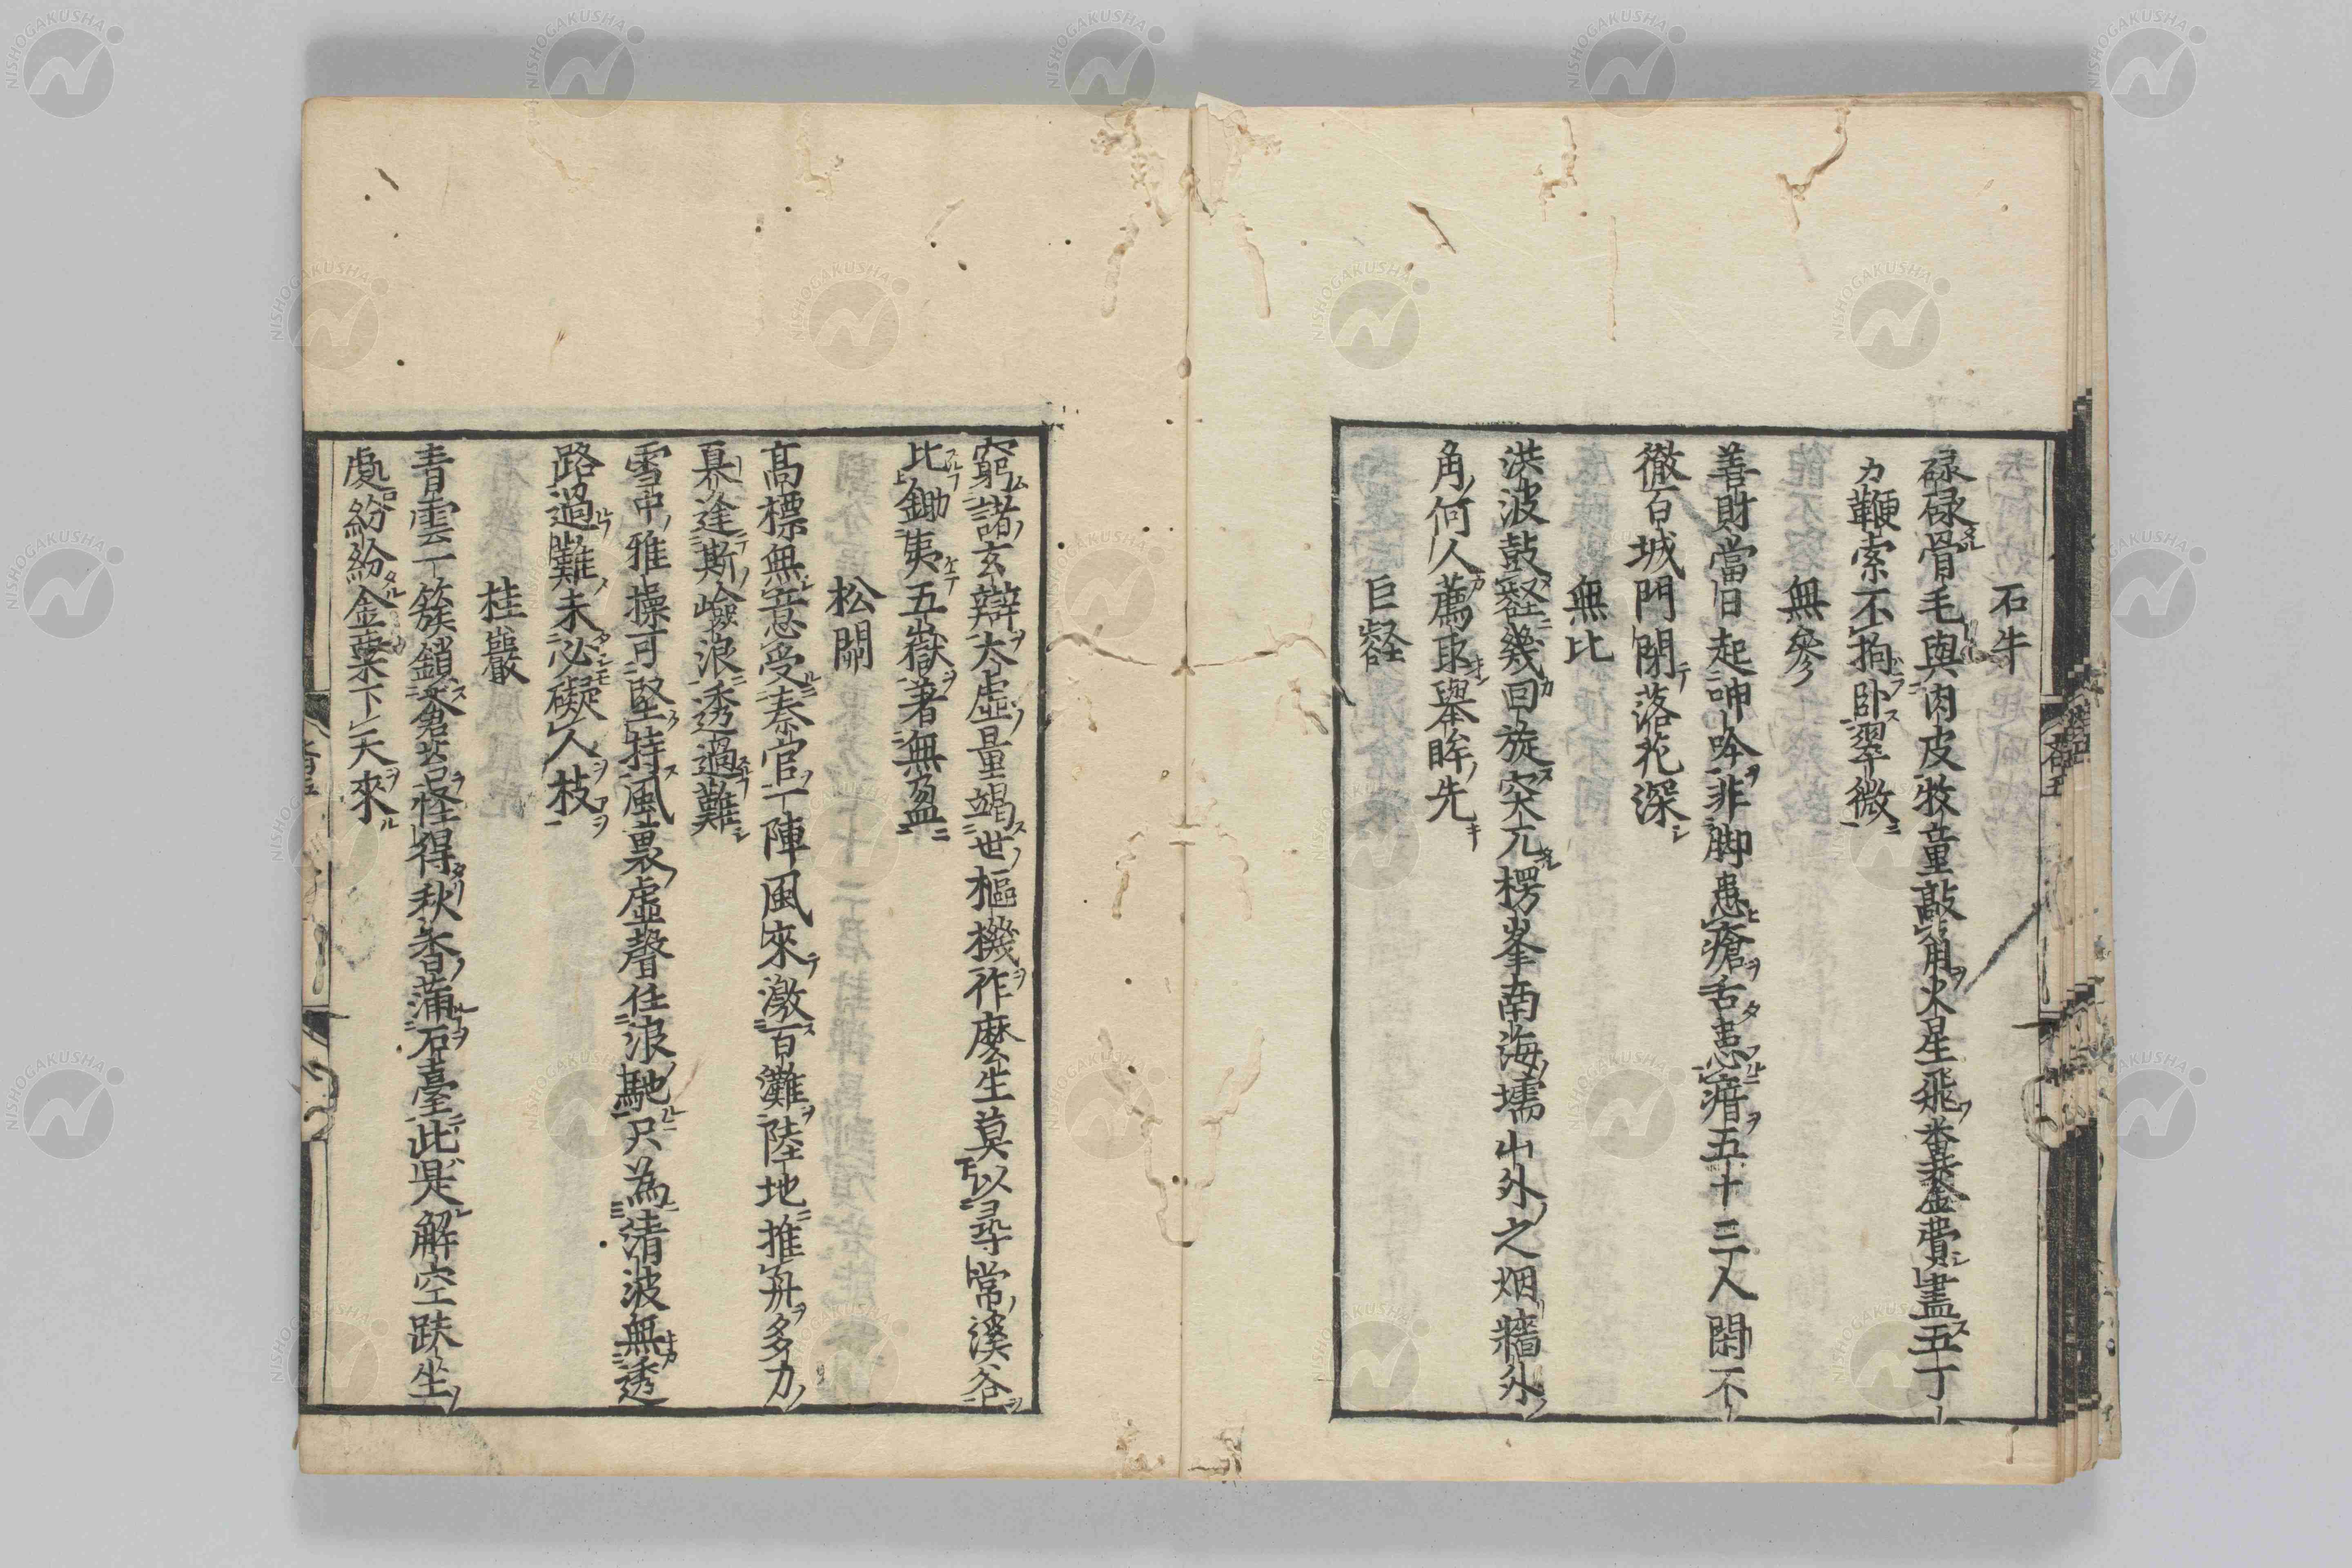 石牛
碌碌骨毛與肉皮牧童敲角火星飛番番費盡五丁
力鞭索不拘臥翠微
無參
善財當日起呻吟非脚患瘡舌患瘖五十三人閑不
徹百城門閉落花深
無比
洪波鼓壑幾回旋突兀楞峯南海壖山外之烟牆外
角何人薦取擧眸先
巨壑
窮諸玄辯太虛量竭世樞機作麼生莫以尋常溪谷
比鋤夷五嶽著無盈
松關
高標無意受秦官一陣風來激百灘陸地推舟多力
士途斯嶮浪透過難
雪中雅操可堅持風裏虛聲任浪馳只為清波無透
路過難未必礙人枝
桂巖
青雲一簇鎖蒼苔怪得秋香滿石臺此是解空趺坐
處紛紛金粟下天來